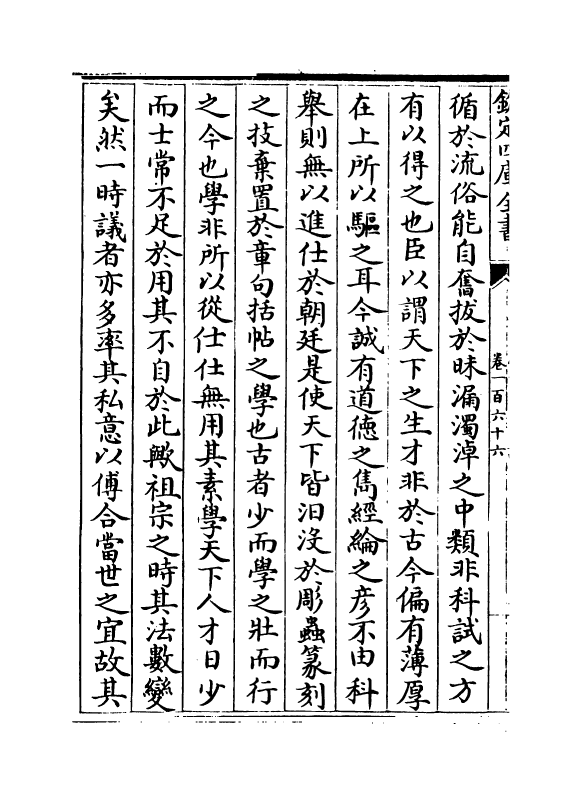 欽定四庫全書
卷一百六十六
循於流俗能自奮拔於昧漏濁淖之中類非科試之方
有以得之也臣以謂天下之生才非於古今偏有薄厚
在上所以驅之耳今誠有道德之雋經綸之彦不由科
舉則無以進仕於朝廷是使天下皆汨没於彫蟲篆刻
之技棄置於章句括帖之學也古者少而學之壯而行
之今也學非所以從仕仕無用其素學天下人才日少
而士常不足於用其不自於此歟祖宗之時其法數變
矣然一時議者亦多率其私意以傅合當世之宜故其